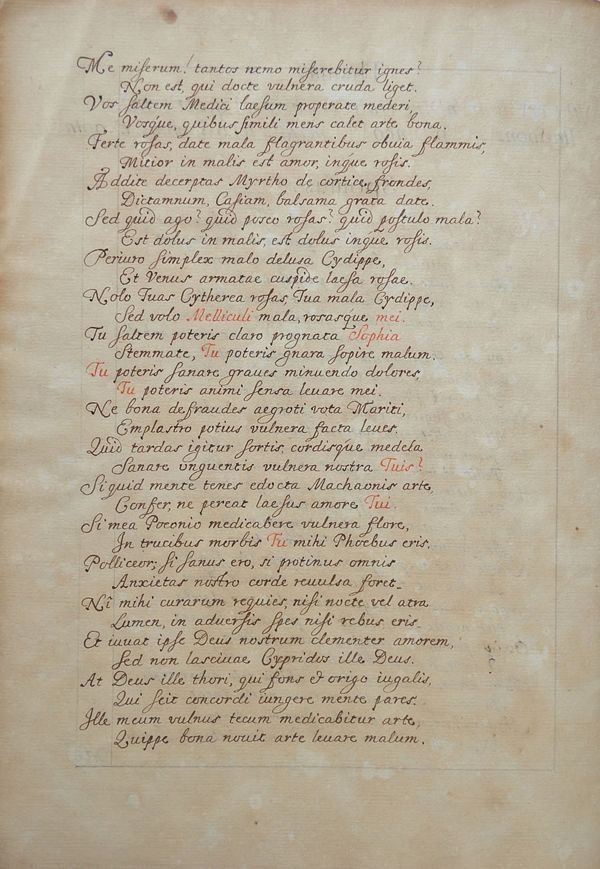 Me miserum! tantos nemo miserebitur ignes?
Non est, qui docte vulnera cruda liget.
Vos saltem Medici laesum properate mederi,
Vosque, quibus simili mens calet arte bona.
Ferte rosas, date mala flagrantibus obuia flammis,
Mitior in malis est amor, inque rosis.
Addite decerptas Myrtho de cortice frondes,
Dictamnum, Casiam, balsama grata date.
Sed quid ago? quid posco rosas? quid postulo mala?
Est dolus in malis, est dolus inque rosis.
Periuro simplex malo delusa Cydippe,
Et Venus armatae cuspide laesa rosae.
Nolo Tuas Cytherea rosas, Tua mala Cydippe,
Sed volo Melliculi mala, rosasque mei.
Tu saltem poteris claro prognata Sophia
Stemmate, Tu poteris gnara sopire malum.
Tu poteris sanare graues minuendo dolores,
Tu poteris animi sensa leuare mei.
Ne bona defraudes aegroti vota Mariti,
Emplastro potius vulnera facta leues.
Quid tardas igitur fortis, cordisque medela
Sanare vnguentis vulnera nostra Tuis?
Si quid mente tenes edocta Machaonis arte,
Confer, ne pereat laesus amore Tui.
Si mea Poeonio medicabere vulnera flore,
In trucibus morbis Tu mihi Phoebus eris.
Polliceor; si sanus ero, si protinus omnis
Anxietas nostro corde reuulsa foret.
Nî mihi curarum requies, nisi nocte vel atra
Lumen, in aduersis spes nisi rebus eris.
Et iuuat ipse Deus nostrum clementer amorem,
Sed non lasciuae Cypridos ille Deus.
At Deus ille thori, qui fons & origo iugalis,
Qui scit concordi iungere mente pares.
Ille meum vulnus tecum medicabitur arte,
Quippe bona nouit arte leuare malum.